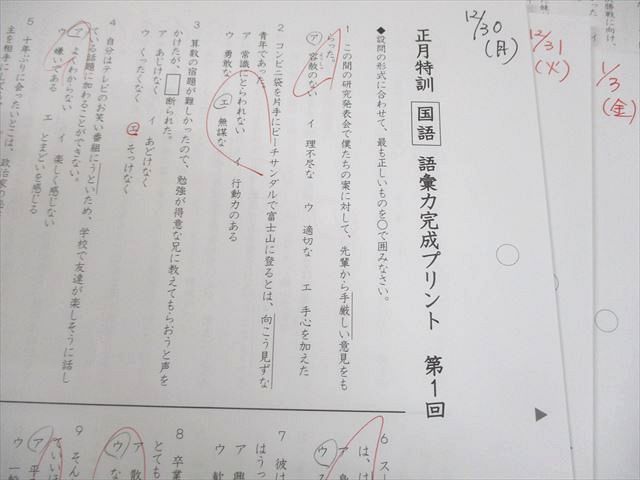 12/30
(月)
12/31
(火)
1/3
(金)
勝戦に向け、
正月特訓 国語 語彙力完成プリント 第1回
◆設問の形式に合わせて、最も正しいものを○で囲みなさい。
1 この間の研究発表会で僕たちの案に対して、先輩から手厳しい意見をも
らった。
ア 容赦のない イ 理不尽な ウ 適切な エ 手心を加えた
2 コンビニ袋を片手にビーチサンダルで富士山に登るとは、向こう見ずな
青年であった。
ア 常識にとらわれない イ 行動力のある
ウ 勇敢な エ 無謀な
3 算数の宿題が難しかったので、勉強が得意な兄に教えてもらおうと声を
かけたが、□断られた。
ア あじけなく イ あどけなく
ウ くったくなく エ そっけなく
4 自分はテレビのお笑い番組にうといため、学校で友達が楽しそうに話し
ている話題に加わることができない。
ア よくわからない イ 楽しく感じない
ウ 嫌いである エ とまどいを感じる
5 十年ぶりに会ったいとこは、政治家の
主を相手にして
6 ス
は、は
ア
ウ
7 彼は
はうっ
ア 興
ウ 歓
8 卒業
とても
ア 散
ウ な
9 そん
ていいほ
ア 平
ウ 一般